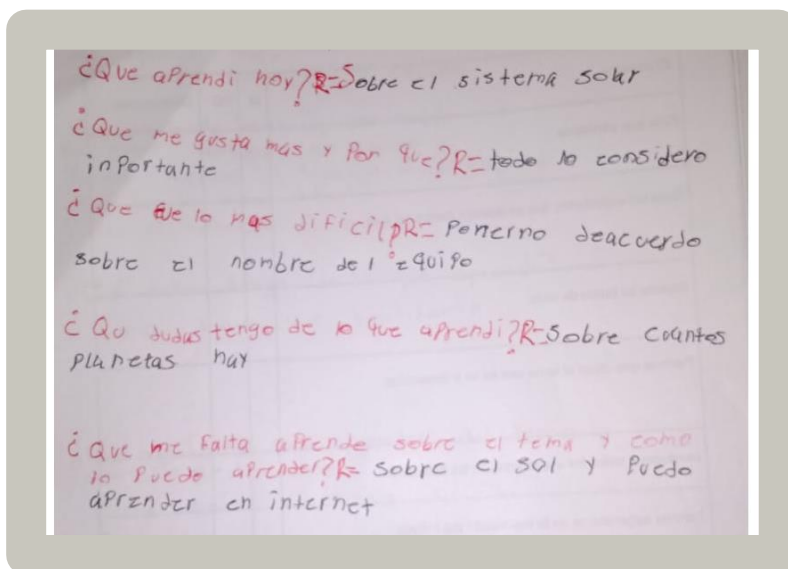 ¿Que aPrendi hoy?R=Sobre el sistema solar
¿Que me gusta mas y Por que?R= todo lo considero
inPortante
¿Que fue lo mas dificil?R= Ponerno deacuerdo
sobre el nonbre del equipo
¿Qu dudas tengo de lo que aprendi?R=Sobre cuantos
Planetas hay
¿Que me falta aPrende sobre el tema y como
lo Puedo aprender?R= sobre el sol y Puedo
aprender en internet